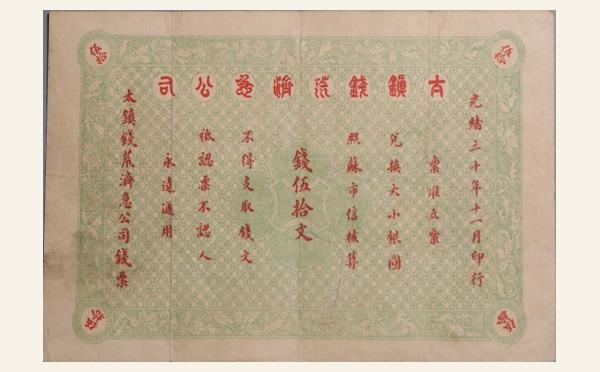 伍拾
伍拾
太鎮錢荒濟急公司
光緒三十年十一月印行
稟准立案
兌換大小銀圓
照蘇市信核算
錢伍拾文
不得支取錢文
祗認票不認人
永遠通用
太鎮錢荒濟急公司錢票